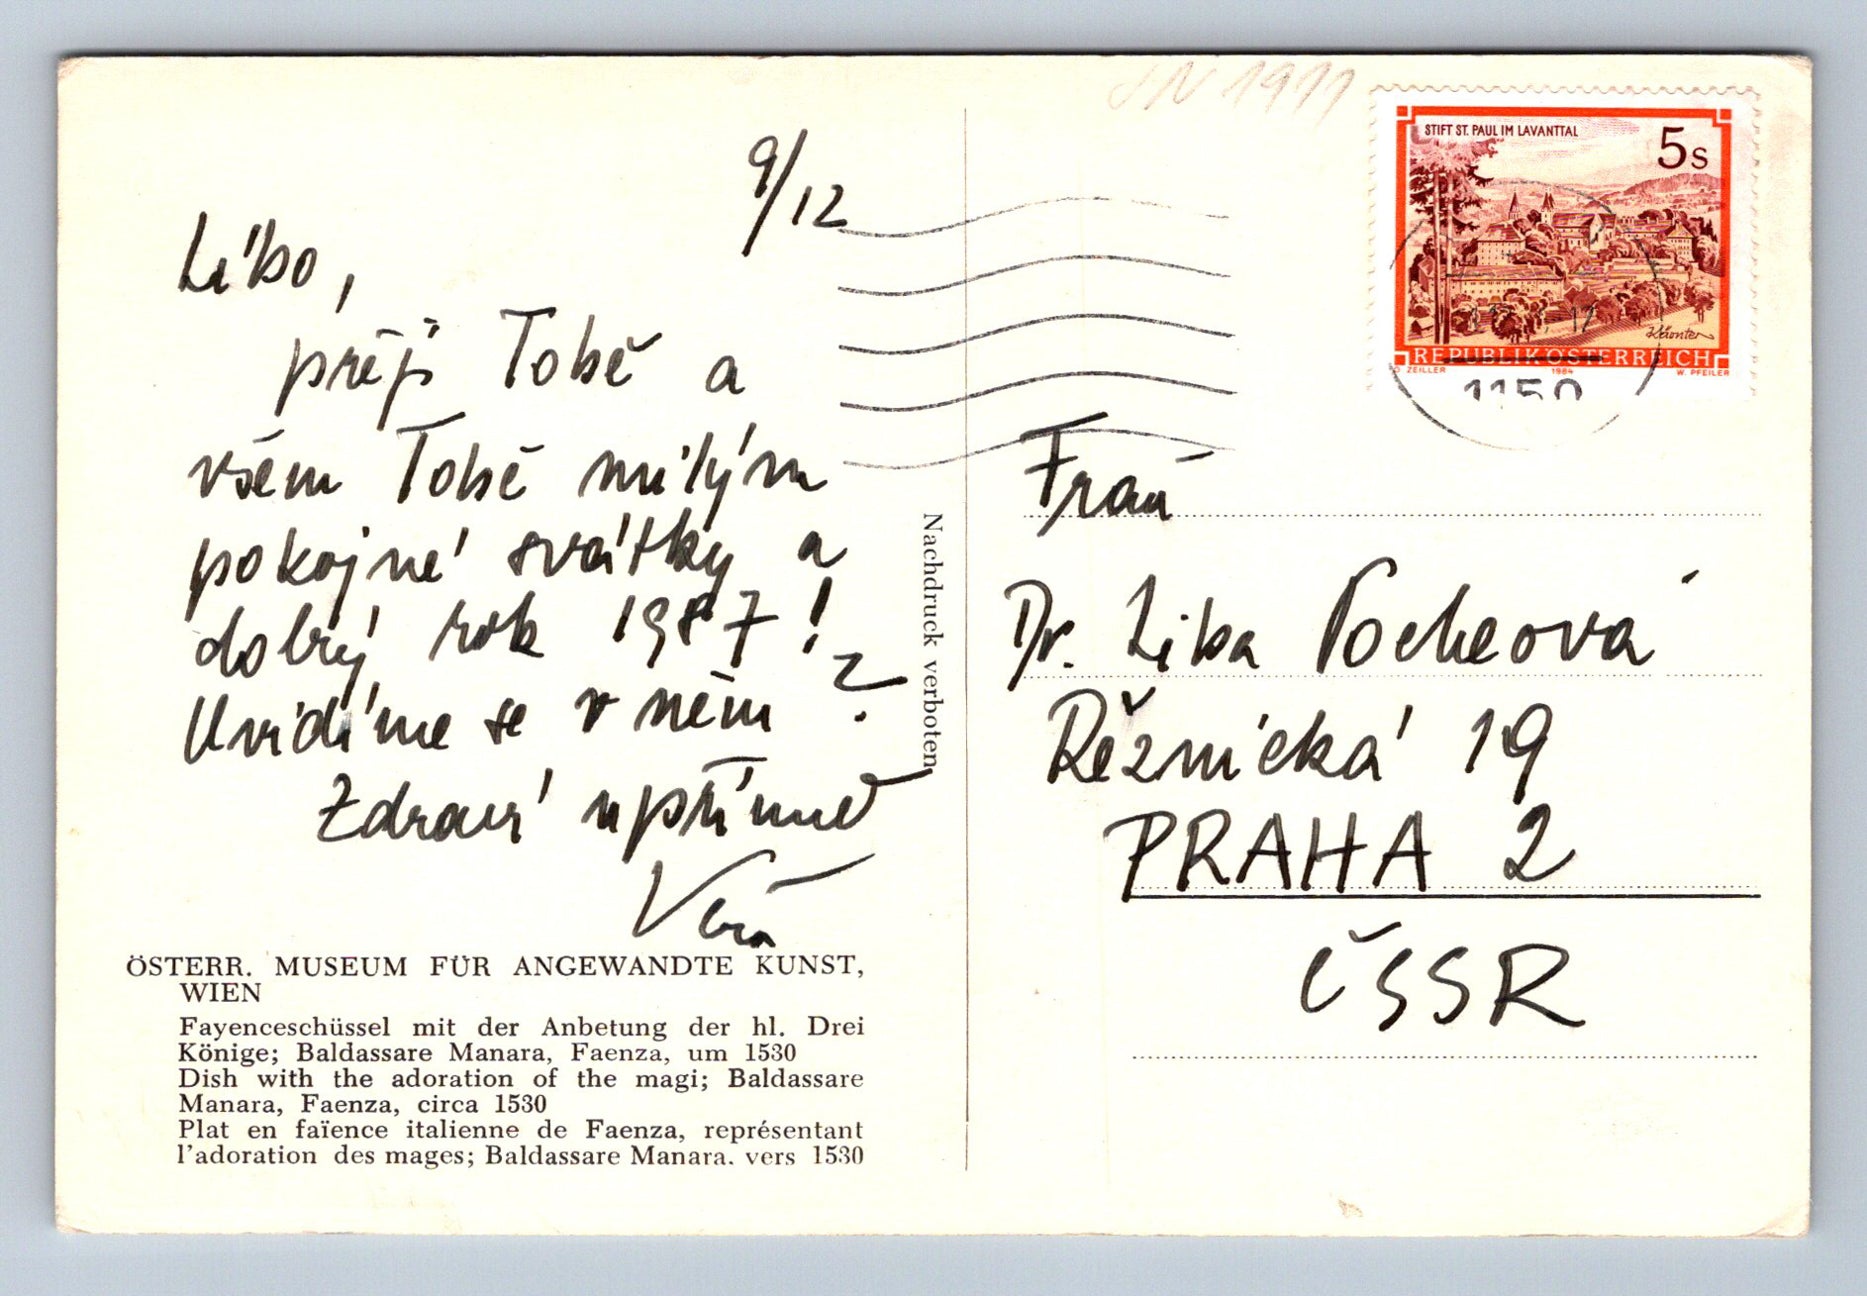 9/12
Líbo,
přeji Tobě a
všem Tobě milým
pokojné svátky a
dobrý rok 1987!
Uvidíme se v něm?
Zdraví upřímně
Věra
ÖSTERR. MUSEUM FÜR ANGEWANDTE KUNST,
WIEN
Fayenceschüssel mit der Anbetung der hl. Drei
Könige; Baldassare Manara, Faenza, um 1530
Dish with the adoration of the magi; Baldassare
Manara, Faenza, circa 1530
Plat en faïence italienne de Faenza, représentant
l'adoration des mages; Baldassare Manara. vers 1530
Nachdruck verboten
STIFT ST. PAUL IM LAVANTTAL
5s
Kärnten
REPUBLIK ÖSTERREICH
O ZEILLER 1984 W. PFEILER
1150
Frau
Dr. Liba Pocheová
Řeznická 19
PRAHA 2
ČSSR